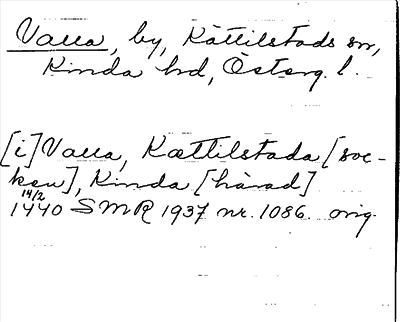 Valla, by, Kättilstads sn,
Kinda hd, Österg. l.
[i] Valla, Kættilstada [soc-
ken], Kinda [härad]
14/2
1440 SMR 1937 nr. 1086. orig.